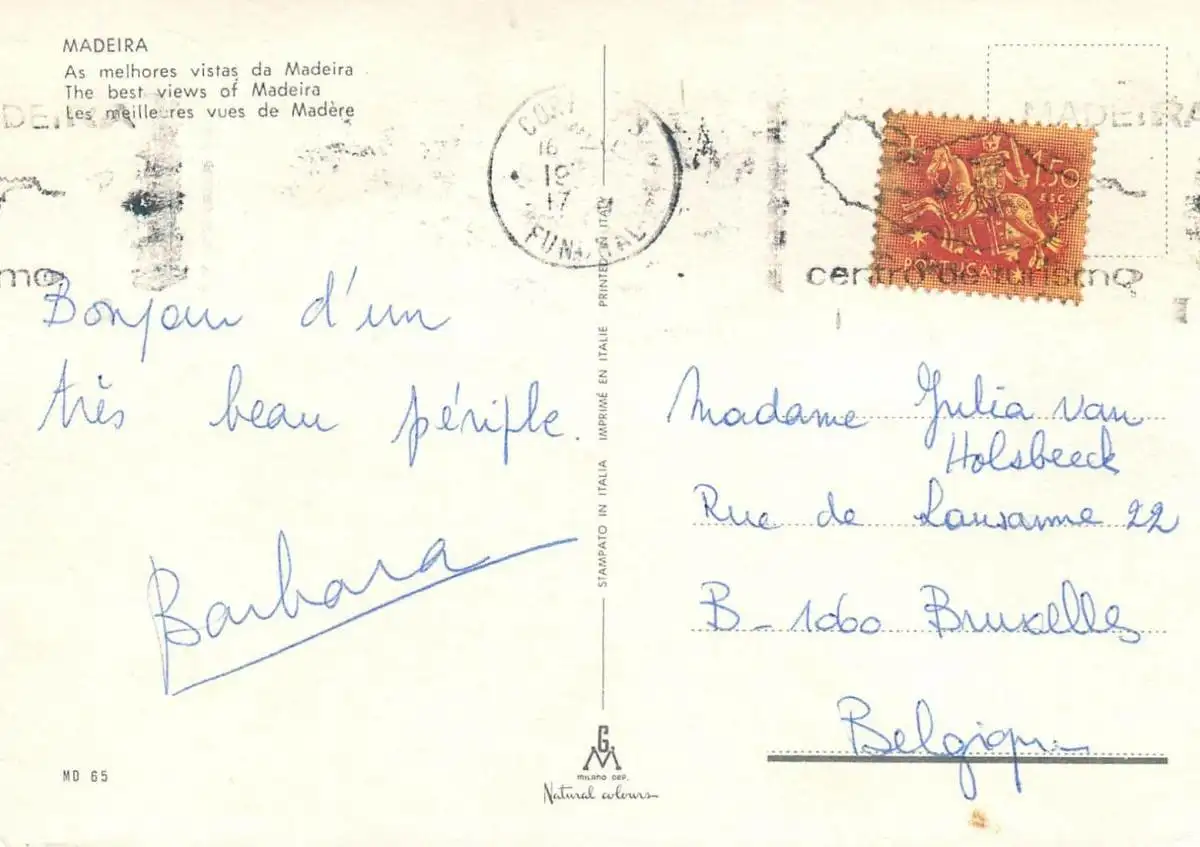 MADEIRA
As melhores vistas da Madeira
The best views of Madeira
Les meilleures vues de Madère
MADEIRA
1$50
ESC.
PORTUGAL
centro de turismo
16
19
17
FUNCHAL
Bonjour d'un
très beau périple.
Barbara
STAMPATO IN ITALIA IMPRIMÉ EN ITALIE PRINTED IN ITALY
Madame Julia van
Holsbeeck
Rue de Lausanne 22
B-1060 Bruxelles
Belgique
MD 65
GM
MILANO DEP.
Natural colours